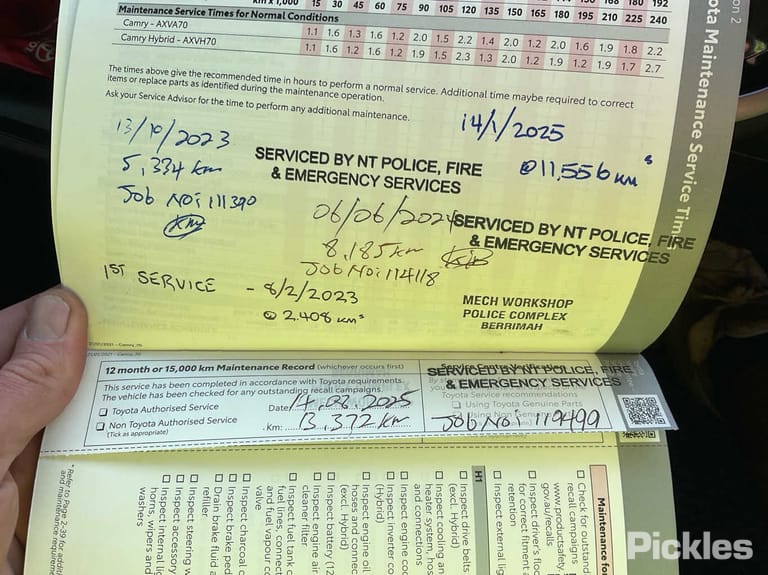 km x 1,000 15 30 45 60 75 90 105 120 135 150 165 180 195 210 225 240
Maintenance Service Times for Normal Conditions
Camry - AXVA70 1.1 1.6 1.3 1.6 1.2 2.0 1.5 2.2 1.4 2.0 1.2 2.0 1.6 1.9 1.8 2.2
Camry Hybrid - AXVH70 1.1 1.6 1.2 1.6 1.2 1.9 1.5 2.3 1.3 2.0 1.2 1.9 1.2 1.9 1.7 2.7
The times above give the recommended time in hours to perform a normal service. Additional time maybe required to correct
items or replace parts as identified during the maintenance operation.
Ask your Service Advisor for the time to perform any additional maintenance.
13/10/2023
5,334 km
Job No: 111390
SERVICED BY NT POLICE, FIRE
& EMERGENCY SERVICES
06/06/2024
8,185 km
Job No: 114118
14/1/2025
@ 11,556 km s
SERVICED BY NT POLICE, FIRE
& EMERGENCY SERVICES
1ST SERVICE - 8/2/2023
@ 2,408 kms
MECH WORKSHOP
POLICE COMPLEX
BERRIMAH
ota Maintenance Service Times
on 2
12 month or 15,000 km Maintenance Record (whichever occurs first)
This service has been completed in accordance with Toyota requirements.
The vehicle has been checked for any outstanding recall campaigns.
Toyota Authorised Service
Non Toyota Authorised Service
(Tick as appropriate)
Date 14.02.2025
Km: 13,372 km
SERVICED BY NT POLICE, FIRE
& EMERGENCY SERVICES
Toyota Service recommendations
Using Toyota Genuine Parts
Using Non Genuine
Job No: 119499
Maintenance for
Check for outstand
recall campaigns
www.productsafety.
gov.au/recalls
Inspect driver's floo
for correct fitment a
retention
Inspect external lig
H1
Inspect drive belts
(excl. Hybrid)
Inspect cooling an
heater system, hos
and connections
Inspect engine coo
Inspect inverter co
(Hybrid)
Inspect engine oil
hoses and connec
(excl. Hybrid)
Inspect battery (12
Inspect engine air
cleaner filter
Inspect fuel tank c
fuel lines, connect
and fuel vapour co
valve
Inspect charcoal c
Inspect brake ped
Drain brake fluid a
refiller
Inspect steering w
Inspect accessory
Inspect internal lig
horns, wipers and
washers
* Refer to Page 2-39 for addit
and maintenance requireme
Pickles